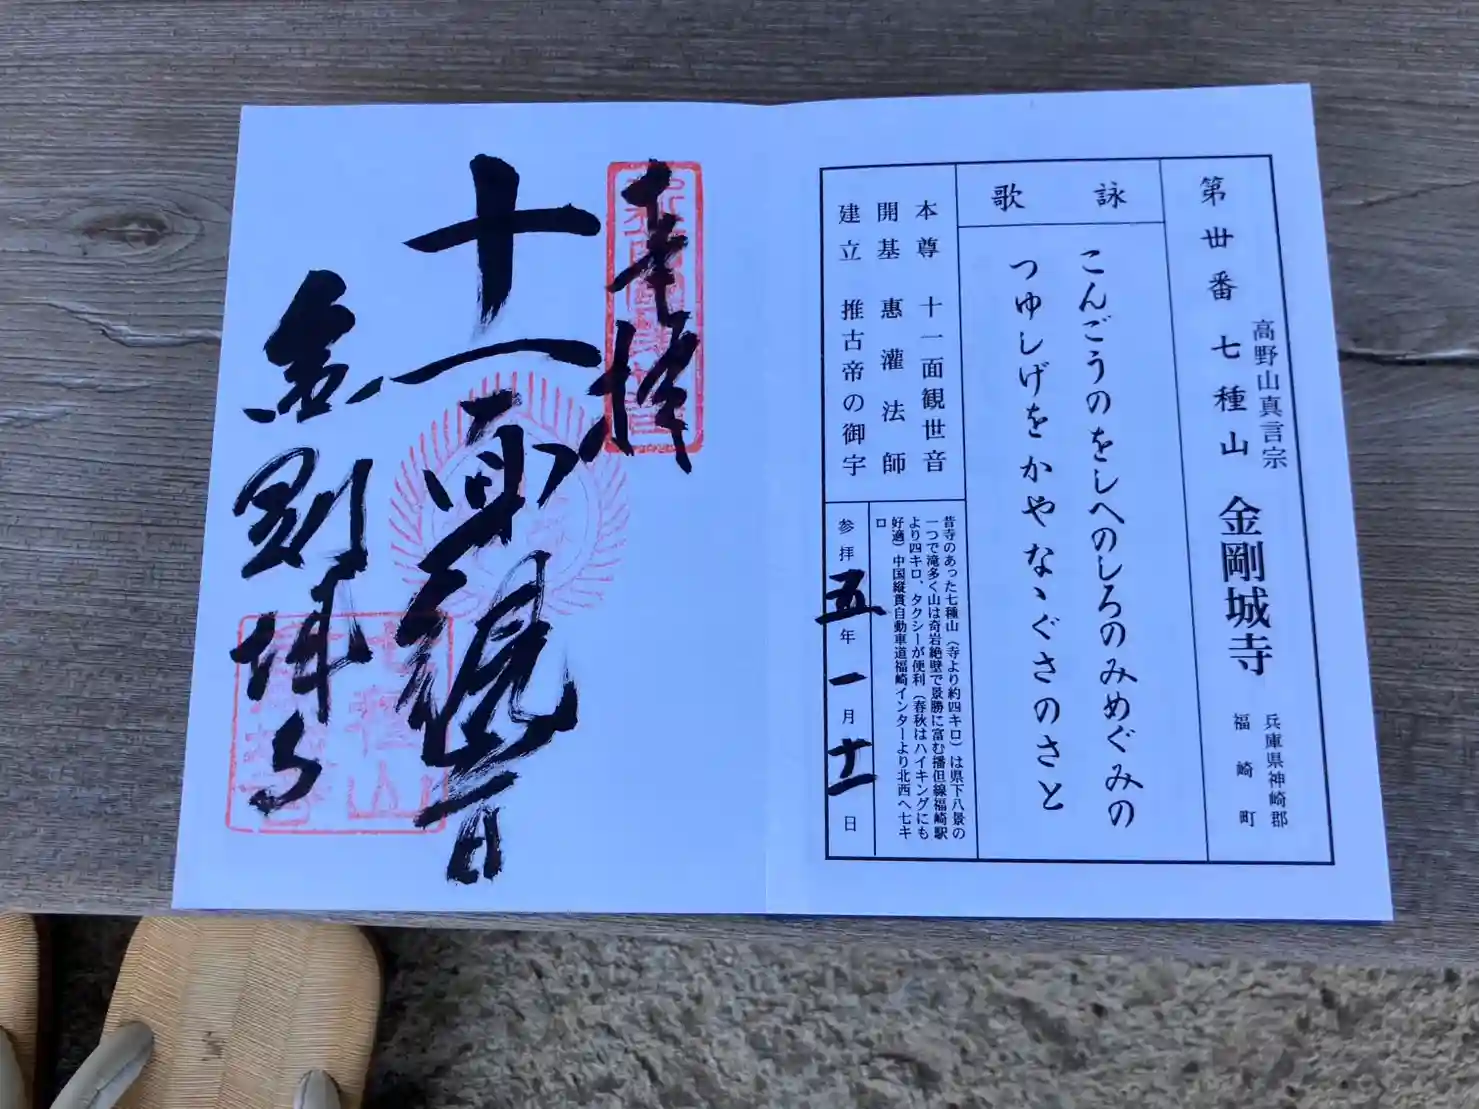 第丗番 七種山
高野山真言宗
金剛城寺
兵庫県神崎郡
福崎町
詠歌
こんごうのをしへのしろのみめぐみの
つゆしげをかやなゝぐさのさと
本尊 十一面観世音
開基 惠灌法師
建立 推古帝の御宇
昔寺のあった七種山(寺より約四キロ)は県下八景の
一つで滝多く山は奇岩絶壁で景勝に富む播但線福崎駅
より四キロ、タクシーが便利(春秋はハイキングにも
好適)中国縦貫自動車道福崎インターより北西へ七キ
ロ
参拝五年一月十一日
奉拝
十一面観世音
金剛城寺
七種山